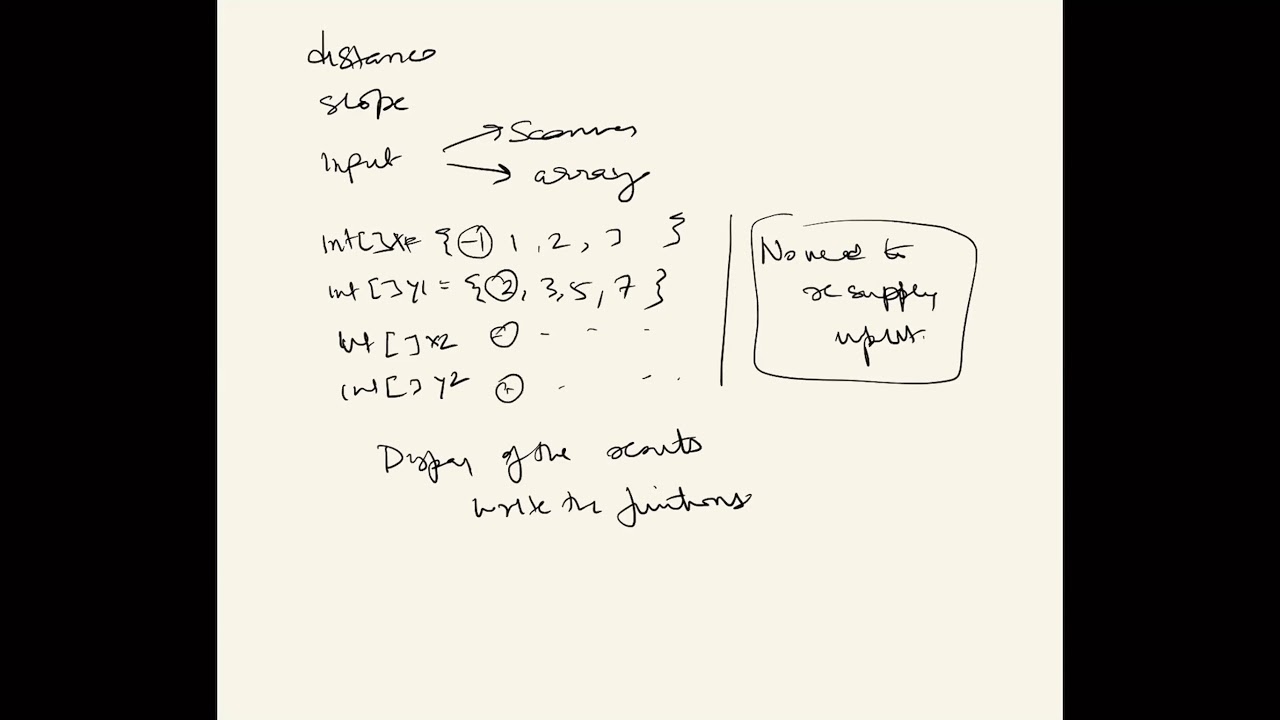 distance
slope
input
Scanner
array
int[]x1= {-1 1, 2, 3 }
int []y1 = {2, 3, 5, 7}
int []x2 - - - -
int[] y2
No need to
resupply
input.
Display of the results
write the functions